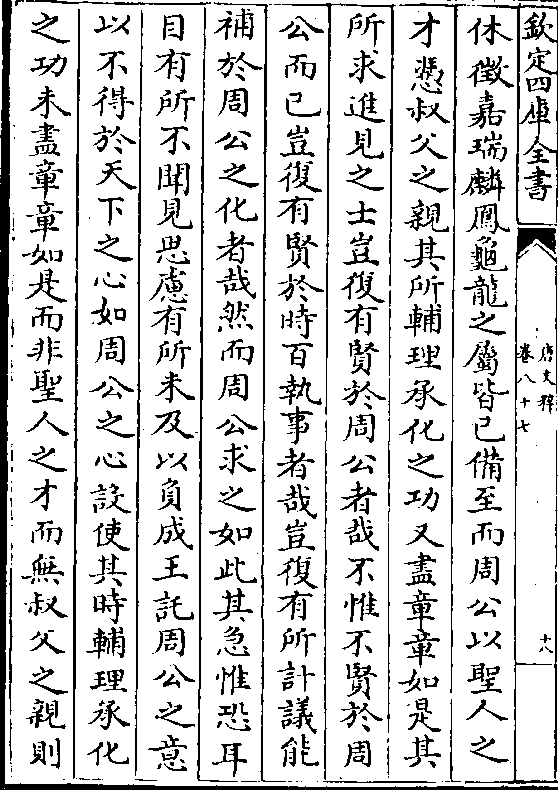 欽定四庫全書
唐文粹
卷八十七
十八
休徵嘉瑞麟鳳龜龍之屬皆已備至而周公以聖人之
才憑叔父之親其所輔理承化之功又盡章章如是其
所求進見之士豈復有賢於周公者哉不惟不賢於周
公而已豈復有賢於時百執事者哉豈復有所計議能
補於周公之化者哉然而周公求之如此其急惟恐耳
目有所不聞見思慮有所未及以負成王託周公之意
以不得於天下之心如周公之心設使其時輔理承化
之功未盡章章如是而非聖人之才而無叔父之親則